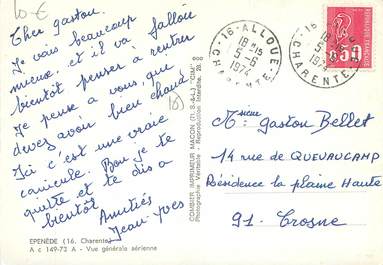 10 €
Cher gaston.
Je vais beaucoup
mieux, et il va falloir
bientôt penser à rentrer
Je pense a vous, que
devez avoir bien chaud.
(8)
Ici c'est une vraie
canicule. Bon je te
quitte et te dis a
bientôt
Amitiés
Jean-Yves
EPENÈDE (16. Charente)
A c 149-73 A - Vue générale aérienne
COMBIER IMPRIMEUR MACON (71. S.-&-L.) "CIM"
Photographie Véritable - Reproduction Interdite.
16 - ALLOUE
18 H 15
5 - 6
1974
CHARENTE
16 -
18
5 - 6
197
CHARENTE
0,50
Mr gaston Bellet
14 rue de QUEVAUCAMP
Résidence la plaine Haute
91. Crosne